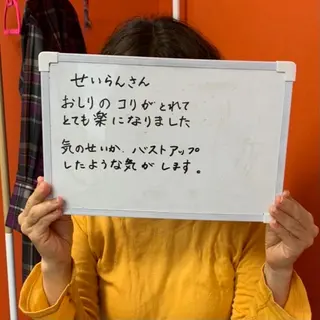 せいらんさん
おしりの コリがとれて
とても楽になりました
気のせいか、バストアップ
したような気がします。